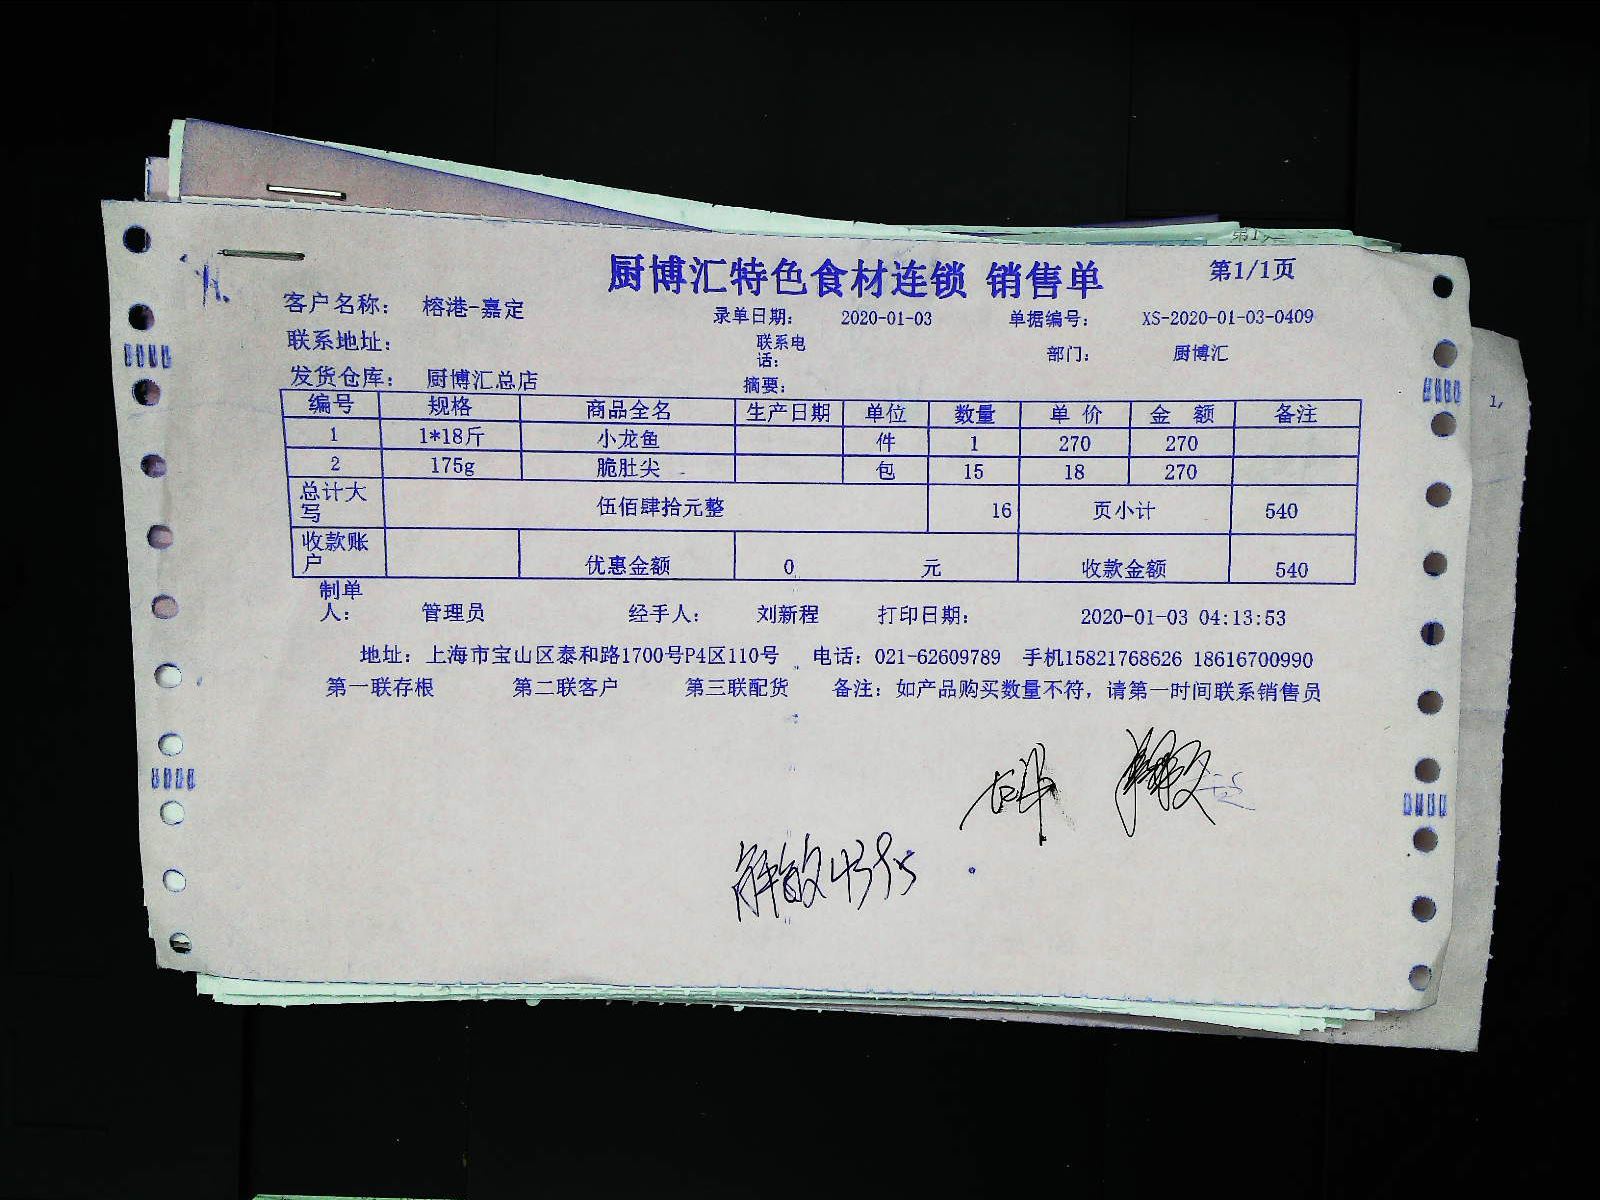 厨博汇特色食材连锁 销售单 第1/1页
客户名称： 榕港-嘉定 录单日期： 2020-01-03 单据编号： XS-2020-01-03-0409
联系地址： 联系电话： 部门： 厨博汇
发货仓库： 厨博汇总店 摘要：
编号 规格 商品全名 生产日期 单位 数量 单价 金额 备注
1 1*18斤 小龙鱼 件 1 270 270
2 175g 脆肚尖 包 15 18 270
总计大写 伍佰肆拾元整 16 页小计 540
收款账户 优惠金额 0 元 收款金额 540
制单人： 管理员 经手人： 刘新程 打印日期： 2020-01-03 04:13:53
地址：上海市宝山区泰和路1700号P4区110号 电话：021-62609789 手机15821768626 18616700990
第一联存根 第二联客户 第三联配货 备注：如产品购买数量不符，请第一时间联系销售员